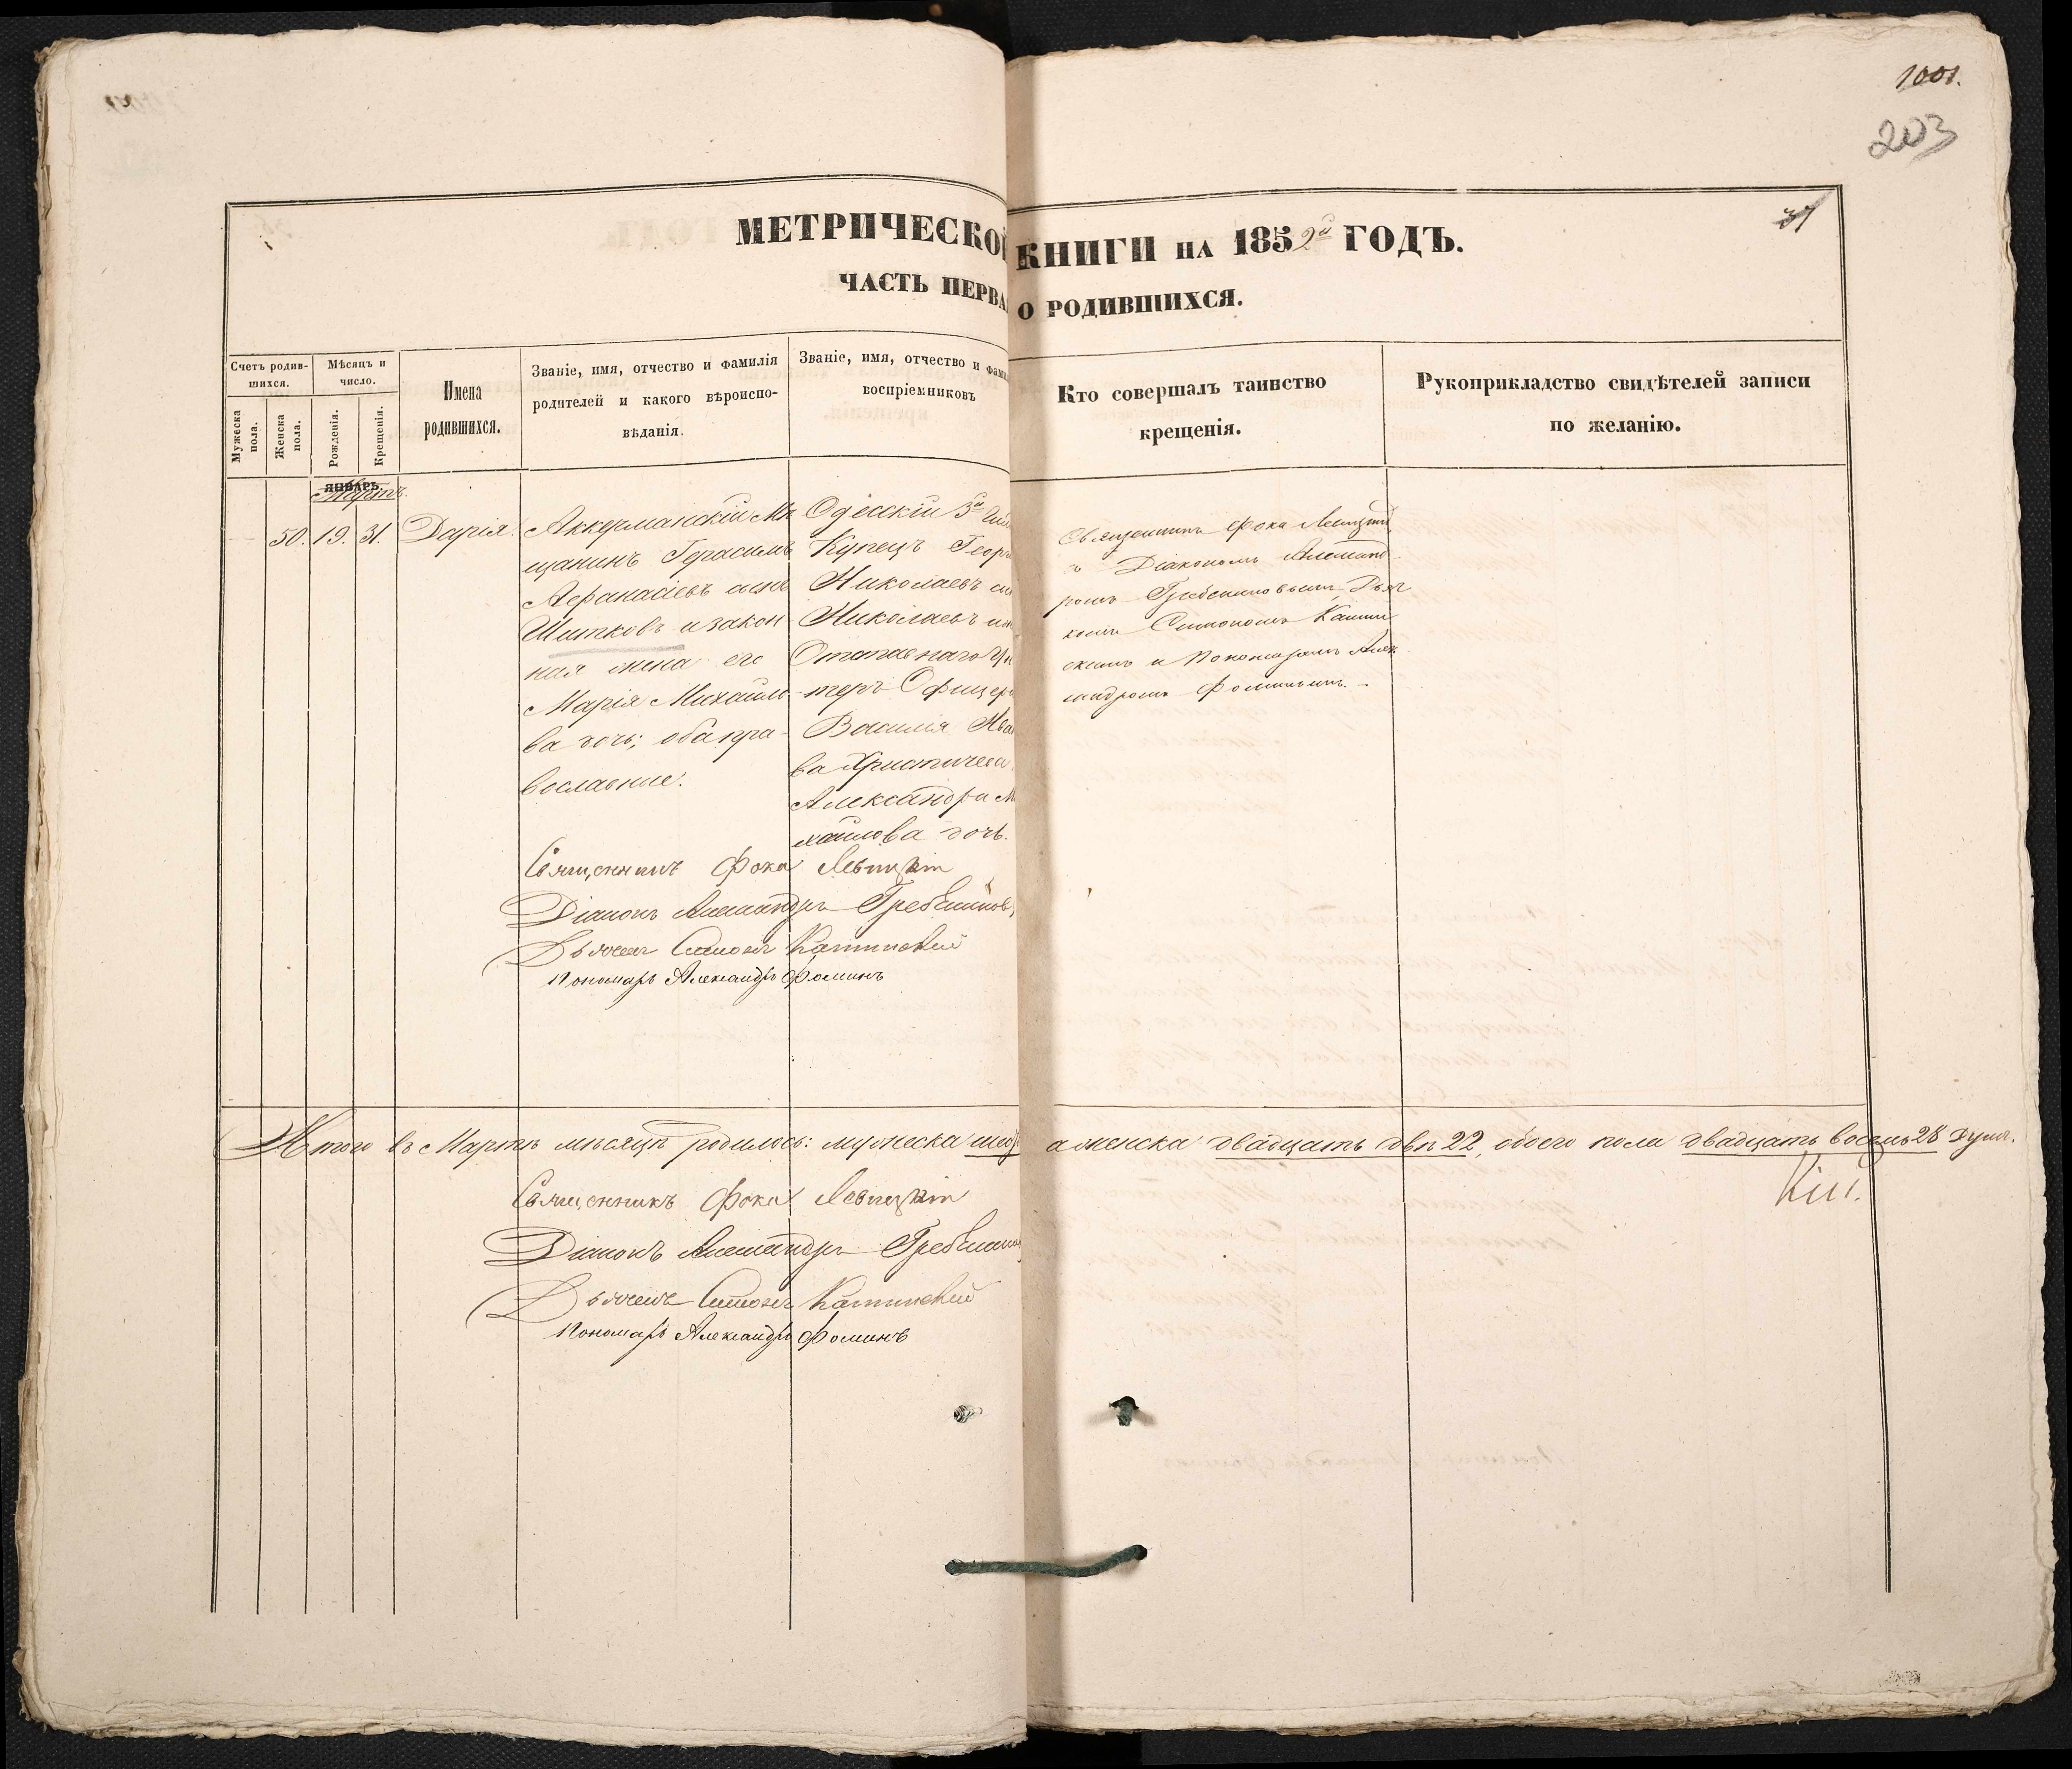 1001.
203
37
МЕТРИЧЕСКОЙ КНИГИ НА 1852й ГОДЪ.
ЧАСТЬ ПЕРВА О РОДИВШИХСЯ.
Счетъ родив-
шихся.
Мужеска
пола.
Женска
пола.
Мѣсяцъ и
число.
Рожденія.
Крещенія.
Имена
родившихся.
Званіе, имя, отчество и фамилія
родителей и какого вѣроиспо-
вѣданія.
Званіе, имя, отчество и фами
воспріемниковъ
Кто совершалъ таинство
крещенія.
Рукоприкладство свидѣтелей записи
по желанію.
ЯНВАРЬ.
Мартъ.
50. 19. 31. Дарія.
Аккерманскій Мѣ
щанинъ Герасимъ
Афанасіевъ сынъ
Шитковъ и закон-
ная жена его
Марія Михаило-
ва дочь; оба пра-
вославные.
Одесскій 3й
Купецъ Георг
Николаевъ
Николаевъ и
Отставнаго Ун
теръ Офицера
Василія Ива
ва Христичева
Александра М
хайлова дочь.
Священникъ Фока Левицкій
съ Діакономъ Александ
ромъ Гребенниковымъ, Дьяч
комъ Симономъ
скимъ и Пономаремъ Алек
сандромъ Фоминымъ.
Священникъ Фока Левицкій
Діаконъ Александръ
Дьячекъ Симонъ
Пономарь Александръ Фоминъ
Итого въ Мартѣ мѣсяцѣ родилось: мужеска шес а женска двадцать двѣ 22, обоего пола двадцать восемь 28 душъ.
Священникъ Фока Левицкій
Діаконъ Александръ
Дьячекъ Симонъ
Пономарь Александръ Фоминъ